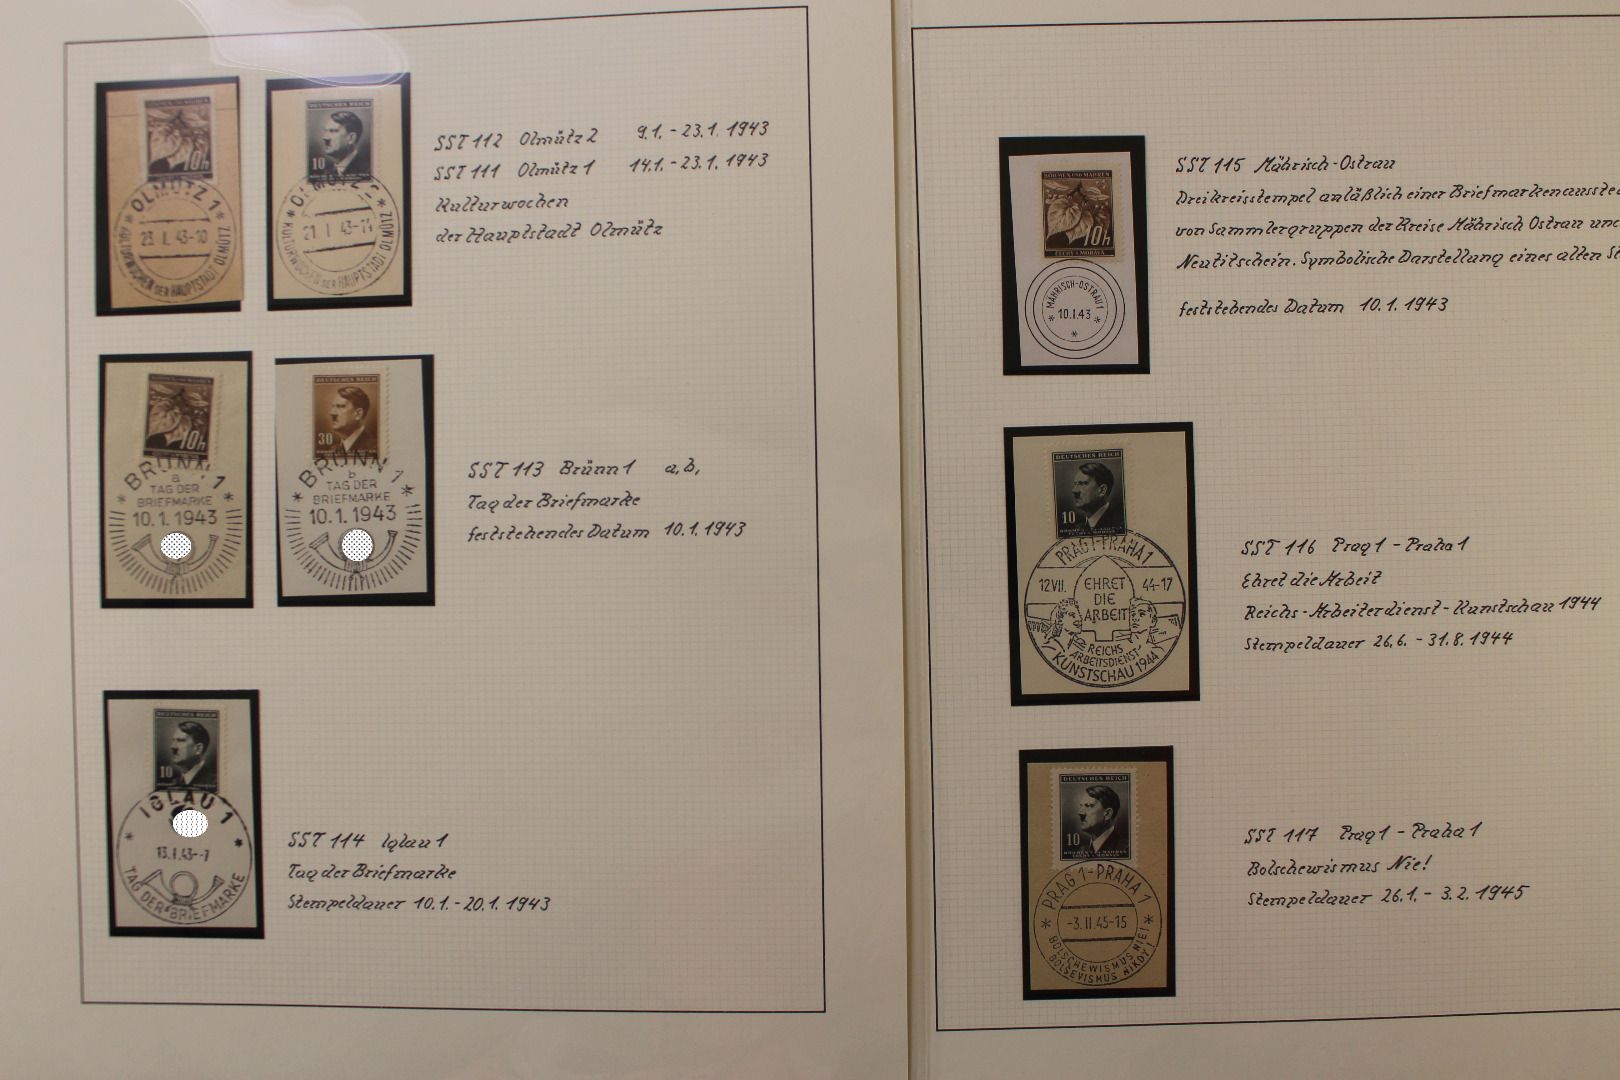 10h
OLMÜTZ 1
23. I. 43-10
KULTURWOCHEN DER HAUPTSTADT OLMÜTZ
DEUTSCHES REICH
10
OLMÜTZ 2
21. I. 43-
KULTURWOCHEN DER HAUPTSTADT OLMÜTZ
SST 112 Olmütz 2 9.1. - 23.1. 1943
SST 111 Olmütz 1 14.1. - 23.1. 1943
Kulturwochen
der Hauptstadt Olmütz
10h
BRÜNN 1
a
TAG DER
BRIEFMARKE
10.1.1943
DEUTSCHES REICH
30
BRÜNN 1
b
TAG DER
BRIEFMARKE
10.1.1943
SST 113 Brünn 1 a, b,
Tag der Briefmarke
feststehendes Datum 10.1.1943
DEUTSCHES REICH
10
IGLAU 1
13. I. 43--7
TAG DER BRIEFMARKE
SST 114 Iglau 1
Tag der Briefmarke
Stempeldauer 10.1. - 20.1. 1943
BÖHMEN UND MÄHREN
10h
ČECHY A MORAVA
MÄHRISCH-OSTRAU 1
* 10.I.43 *
SST 115 Mährisch-Ostrau
Dreikreisstempel anläßlich einer Briefmarkenausste
von Sammlergruppen der Kreise Mährisch Ostrau und
Neutitschein. Symbolische Darstellung eines alten St
feststehendes Datum 10.1. 1943
DEUTSCHES REICH
10
PRAG 1-PRAHA 1
12.VII. 44-17
EHRET
DIE
ARBEIT
REICHS
ARBEITSDIENST-
KUNSTSCHAU 1944
SST 116 Prag 1 - Praha 1
Ehret die Arbeit
Reichs-Arbeiterdienst-Kunstschau 1944
Stempeldauer 26.6. - 31.8. 1944
DEUTSCHES REICH
10
BÖHMEN U. MÄHREN
ČECHY A MORAVA
PRAG 1-PRAHA 1
* -3.II.45-15 *
BOLSCHEWISMUS NIE!
BOLŠEVISMUS NIKDY!
SST 117 Prag 1 - Praha 1
Bolschewismus Nie!
Stempeldauer 26.1. - 3.2. 1945